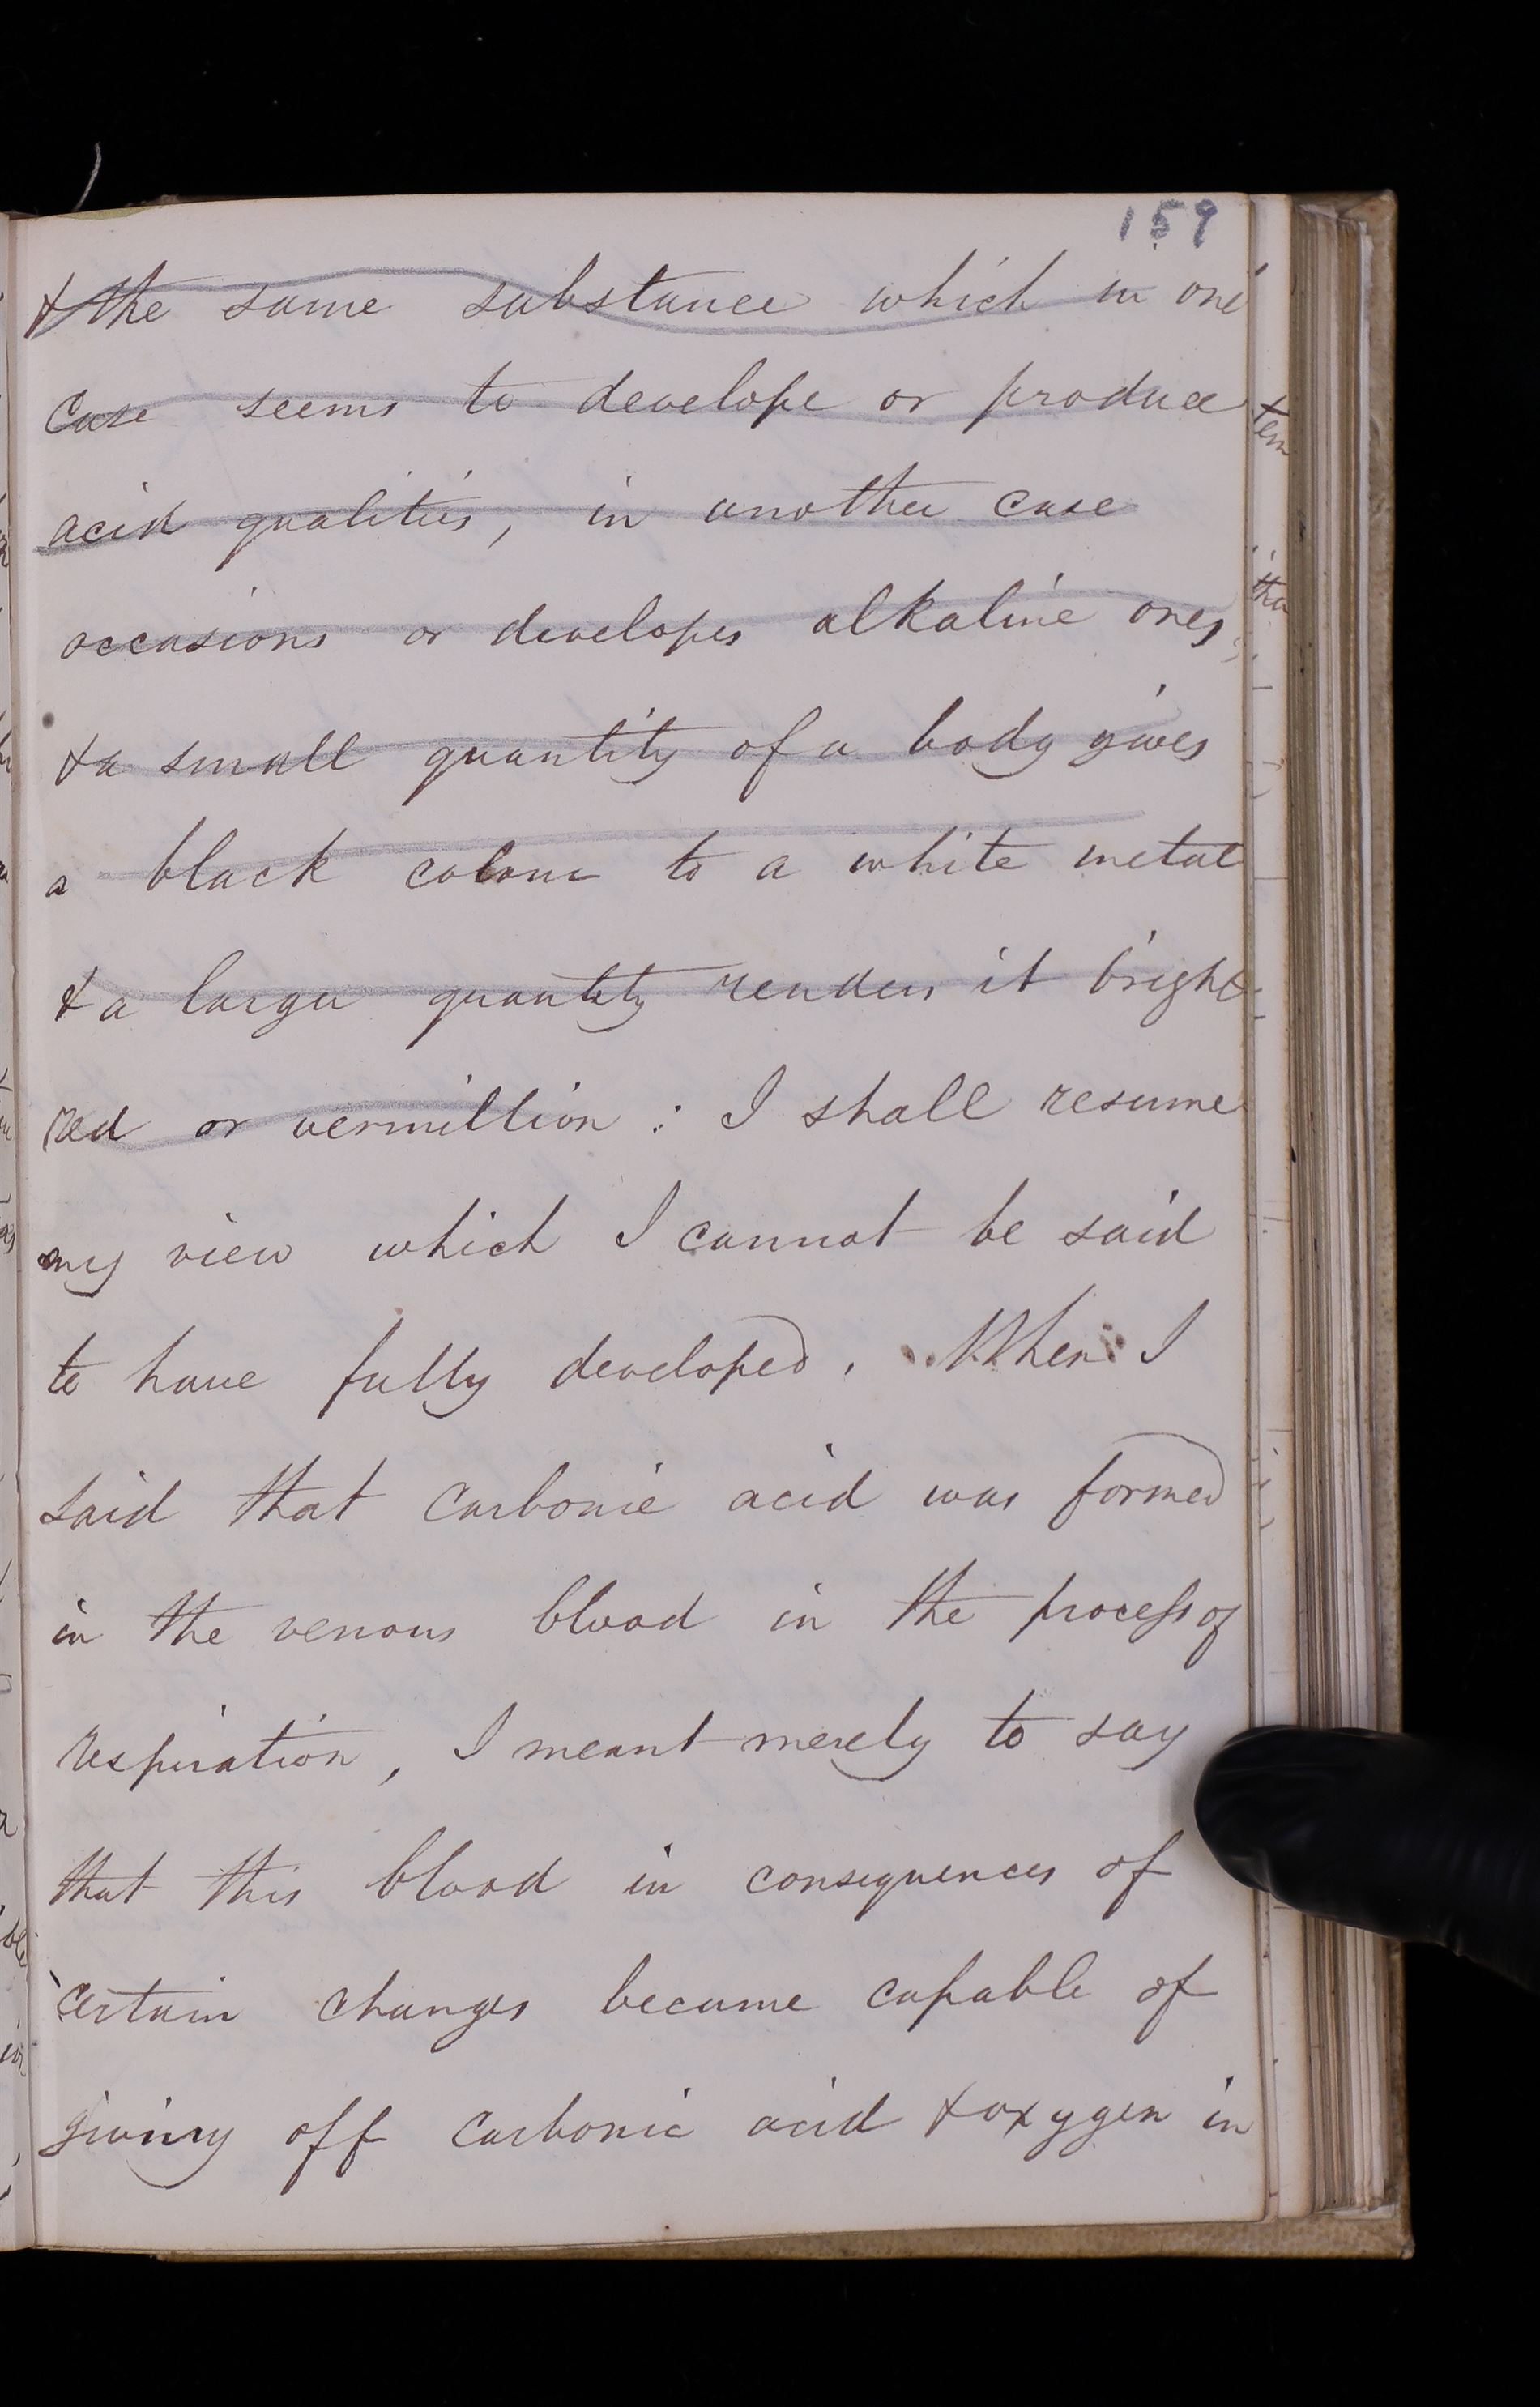 159
& the same substance which in one
case seems to develope or produce
acid qualities, in another case
occasions or developes alkaline ones,
& a small quantity of a body gives
a black colour to a white metal
& a larger quantity renders it bright
red or vermillion : I shall resume
my view which I cannot be said
to have fully developed. When I
said that carbonic acid was formed
in the venous blood in the process of
respiration, I meant merely to say
that this blood in consequences of
certain changes became capable of
giving off carbonic acid & oxygen in